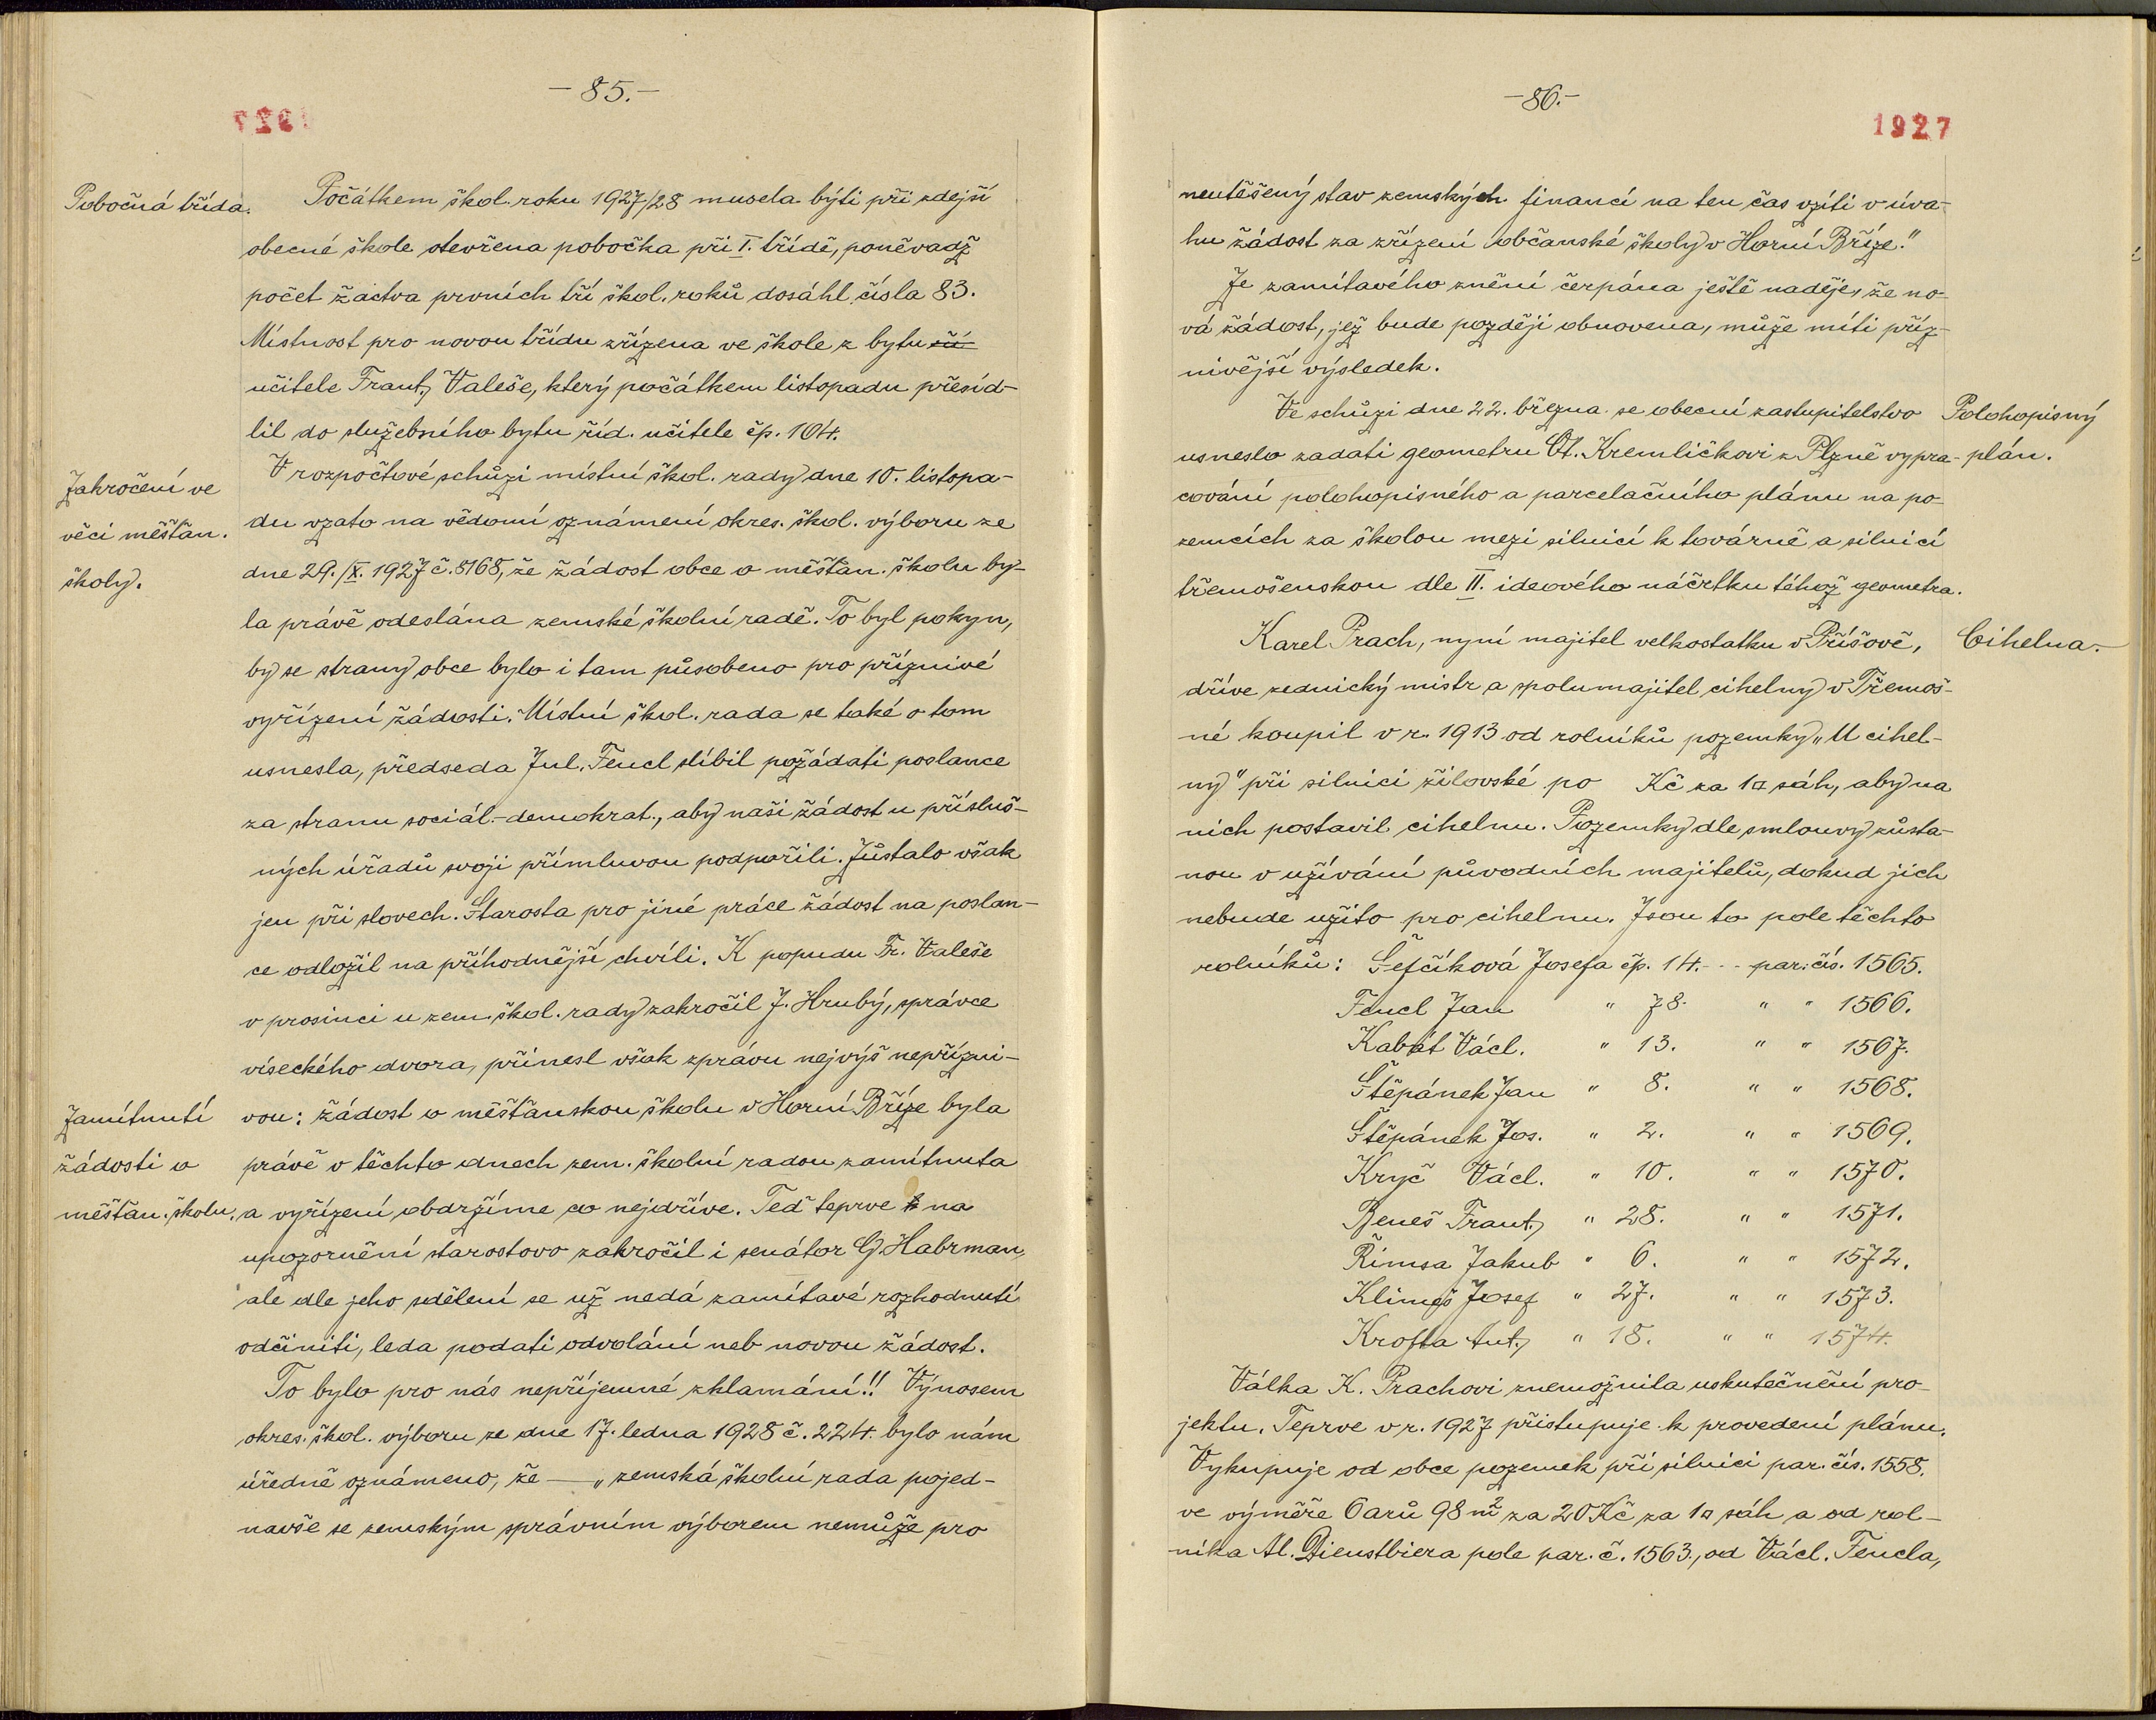 -85.-
1927
Pobočná třída.
Počátkem škol. roku 1927/28 musela býti při zdejší
obecné škole otevřena pobočka při I. třídě, poněvadž
počet žactva prvních tří škol. roků dosáhl čísla 83.
Místnost pro novou třídu zřízena ve škole z bytu
učitele Frant. Valeše, který počátkem listopadu přesíd-
lil do služebního bytu říd. učitele čp. 104.
Zakročení ve
věci měšťan.
školy.
V rozpočtové schůzi místní škol. rady dne 10. listopa-
du vzato na vědomí oznámení okres. škol. výboru ze
dne 29./X. 1927 č. 8168, že žádost obce o měšťan. školu by-
la právě odeslána zemské školní radě. To byl pokyn,
by se strany obce bylo i tam působeno pro příznivé
vyřízení žádosti. Místní škol. rada se také o tom
usnesla, předseda Jul. Fencl slíbil požádati poslance
za stranu sociál.-demokrat., aby naši žádost u přísluš-
ných úřadů svoji přímluvou podpořili. Zůstalo však
jen při slovech. Starosta pro jiné práce žádost na poslan-
ce odložil na příhodnější chvíli. K popudu Fr. Valeše
v prosinci u zem. škol. rady zakročil J. Hrubý, správce
víseckého dvora, přinesl však zprávu nejvýš nepřízni-
Zamítnutí
žádosti o
měšťan. školu.
vou: žádost o měšťanskou školu v Horní Bříze byla
právě v těchto dnech zem. školní radou zamítnuta
a vyřízení obdržíme co nejdříve. Teď teprve na
upozornění starostovo zakročil i senátor G. Habrman,
ale dle jeho sdělení se už nedá zamítavé rozhodnutí
odčiniti, leda podati odvolání neb novou žádost.
To bylo pro nás nepříjemné zklamání!! Výnosem
okres. škol. výboru ze dne 17. ledna 1928 č. 224. bylo nám
úředně oznámeno, že — „zemská školní rada pojed-
navše se zemským správním výborem nemůže pro
-86.-
1927
neutěšený stav zemských financí na ten čas vzíti v úva-
hu žádost za zřízení občanské školy v Horní Bříze."
Ze zamítavého znění čerpána ještě naděje, že no-
vá žádost, jež bude později obnovena, může míti příz-
nivější výsledek.
Polohopisný
plán.
Ve schůzi dne 22. března se obecní zastupitelstvo
usneslo zadati geometru Ot. Kremličkovi z Plzně vypra-
cování polohopisného a parcelačního plánu na po-
zemcích za školou mezi silnicí k továrně a silnicí
třemošenskou dle II. ideového náčrtku téhož geometra.
Cihelna.
Karel Prach, nyní majitel velkostatku v Příšově,
dříve zednický mistr a spolumajitel cihelny v Třemoš-
né koupil v r. 1913 od rolníků pozemky „U cihel-
ny" při silnici žilovské po Kč za 1□ sáh, aby na
nich postavil cihelnu. Pozemky dle smlouvy zůsta-
nou v užívání původních majitelů, dokud jich
nebude užito pro cihelnu. Jsou to pole těchto
rolníků: Šefčíková Josefa čp. 14. --- par. čís. 1565.
Fencl Jan " 78. " " 1566.
Kabát Václ. " 13. " " 1567.
Štěpánek Jan " 8. " " 1568.
Štěpánek Jos. " 2. " " 1569.
Kryč Václ. " 10. " " 1570.
Beneš Frant. " 28. " " 1571.
Římsa Jakub " 6. " " 1572.
Klimeš Josef " 27. " " 1573.
Krofta Ant. " 18. " " 1574.
Válka K. Prachovi znemožnila uskutečnění pro-
jektu. Teprve v r. 1927 přistupuje k provedení plánu.
Vykupuje od obce pozemek při silnici par. čís. 1558.
ve výměře 6 arů 98 m² za 20 Kč za 1□ sáh a od rol-
níka Al. Dienstbiera pole par. č. 1563., od Václ. Fencla,